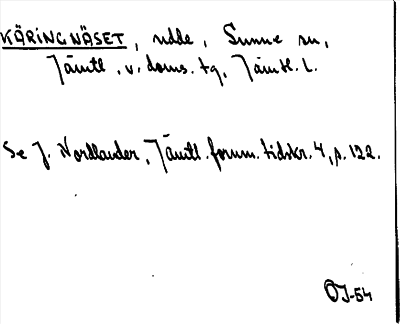 KÄRINGNÄSET, udde, Sunne sn,
Jämtl. v. doms. tg, Jämtl. L.
Se J. Nordlander, Jämtl. fornm. tidskr. 4, p. 122.
OJ-54